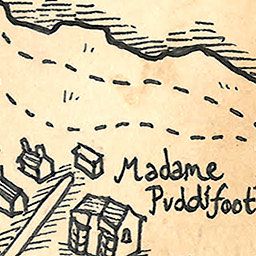 Madame
Puddifoot